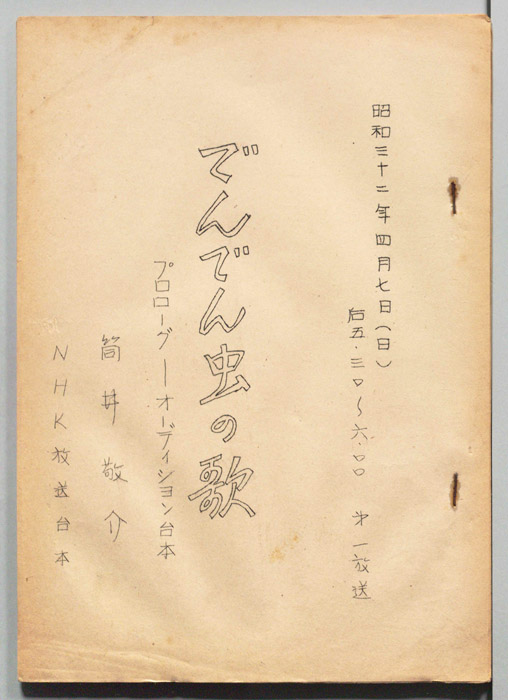 昭和三十二年四月七日(日)
后五・三〇〜六・〇〇 第一放送
でんでん虫の歌
プロローグ ーオーディション台本
筒井敬介
NHK放送台本